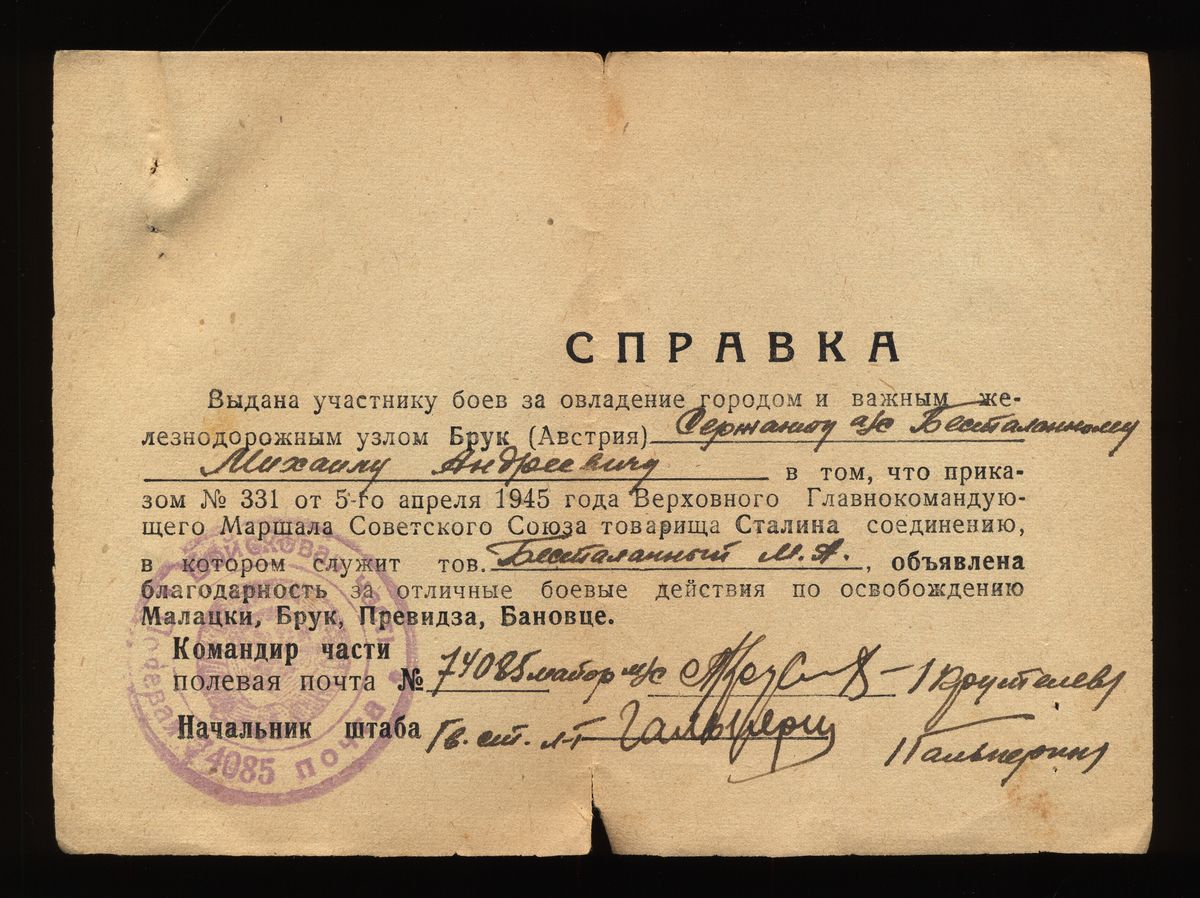 СПРАВКА
Выдана участнику боев за овладение городом и важным же-
лезнодорожным узлом Брук (Австрия) Сержанту а/с Бесталанному
Михаилу Андреевичу в том, что прика-
зом № 331 от 5-го апреля 1945 года Верховного Главнокомандую-
щего Маршала Советского Союза товарища Сталина соединению,
в котором служит тов. Бесталанный М. А., объявлена
благодарность за отличные боевые действия по освобождению
Малацки, Брук, Превидза, Бановце.
Командир части
полевая почта № 74085 майор
Начальник штаба Гв. ст. л-т Гальперин
/Гальперин/
Войсковая часть
Полевая почта
74085